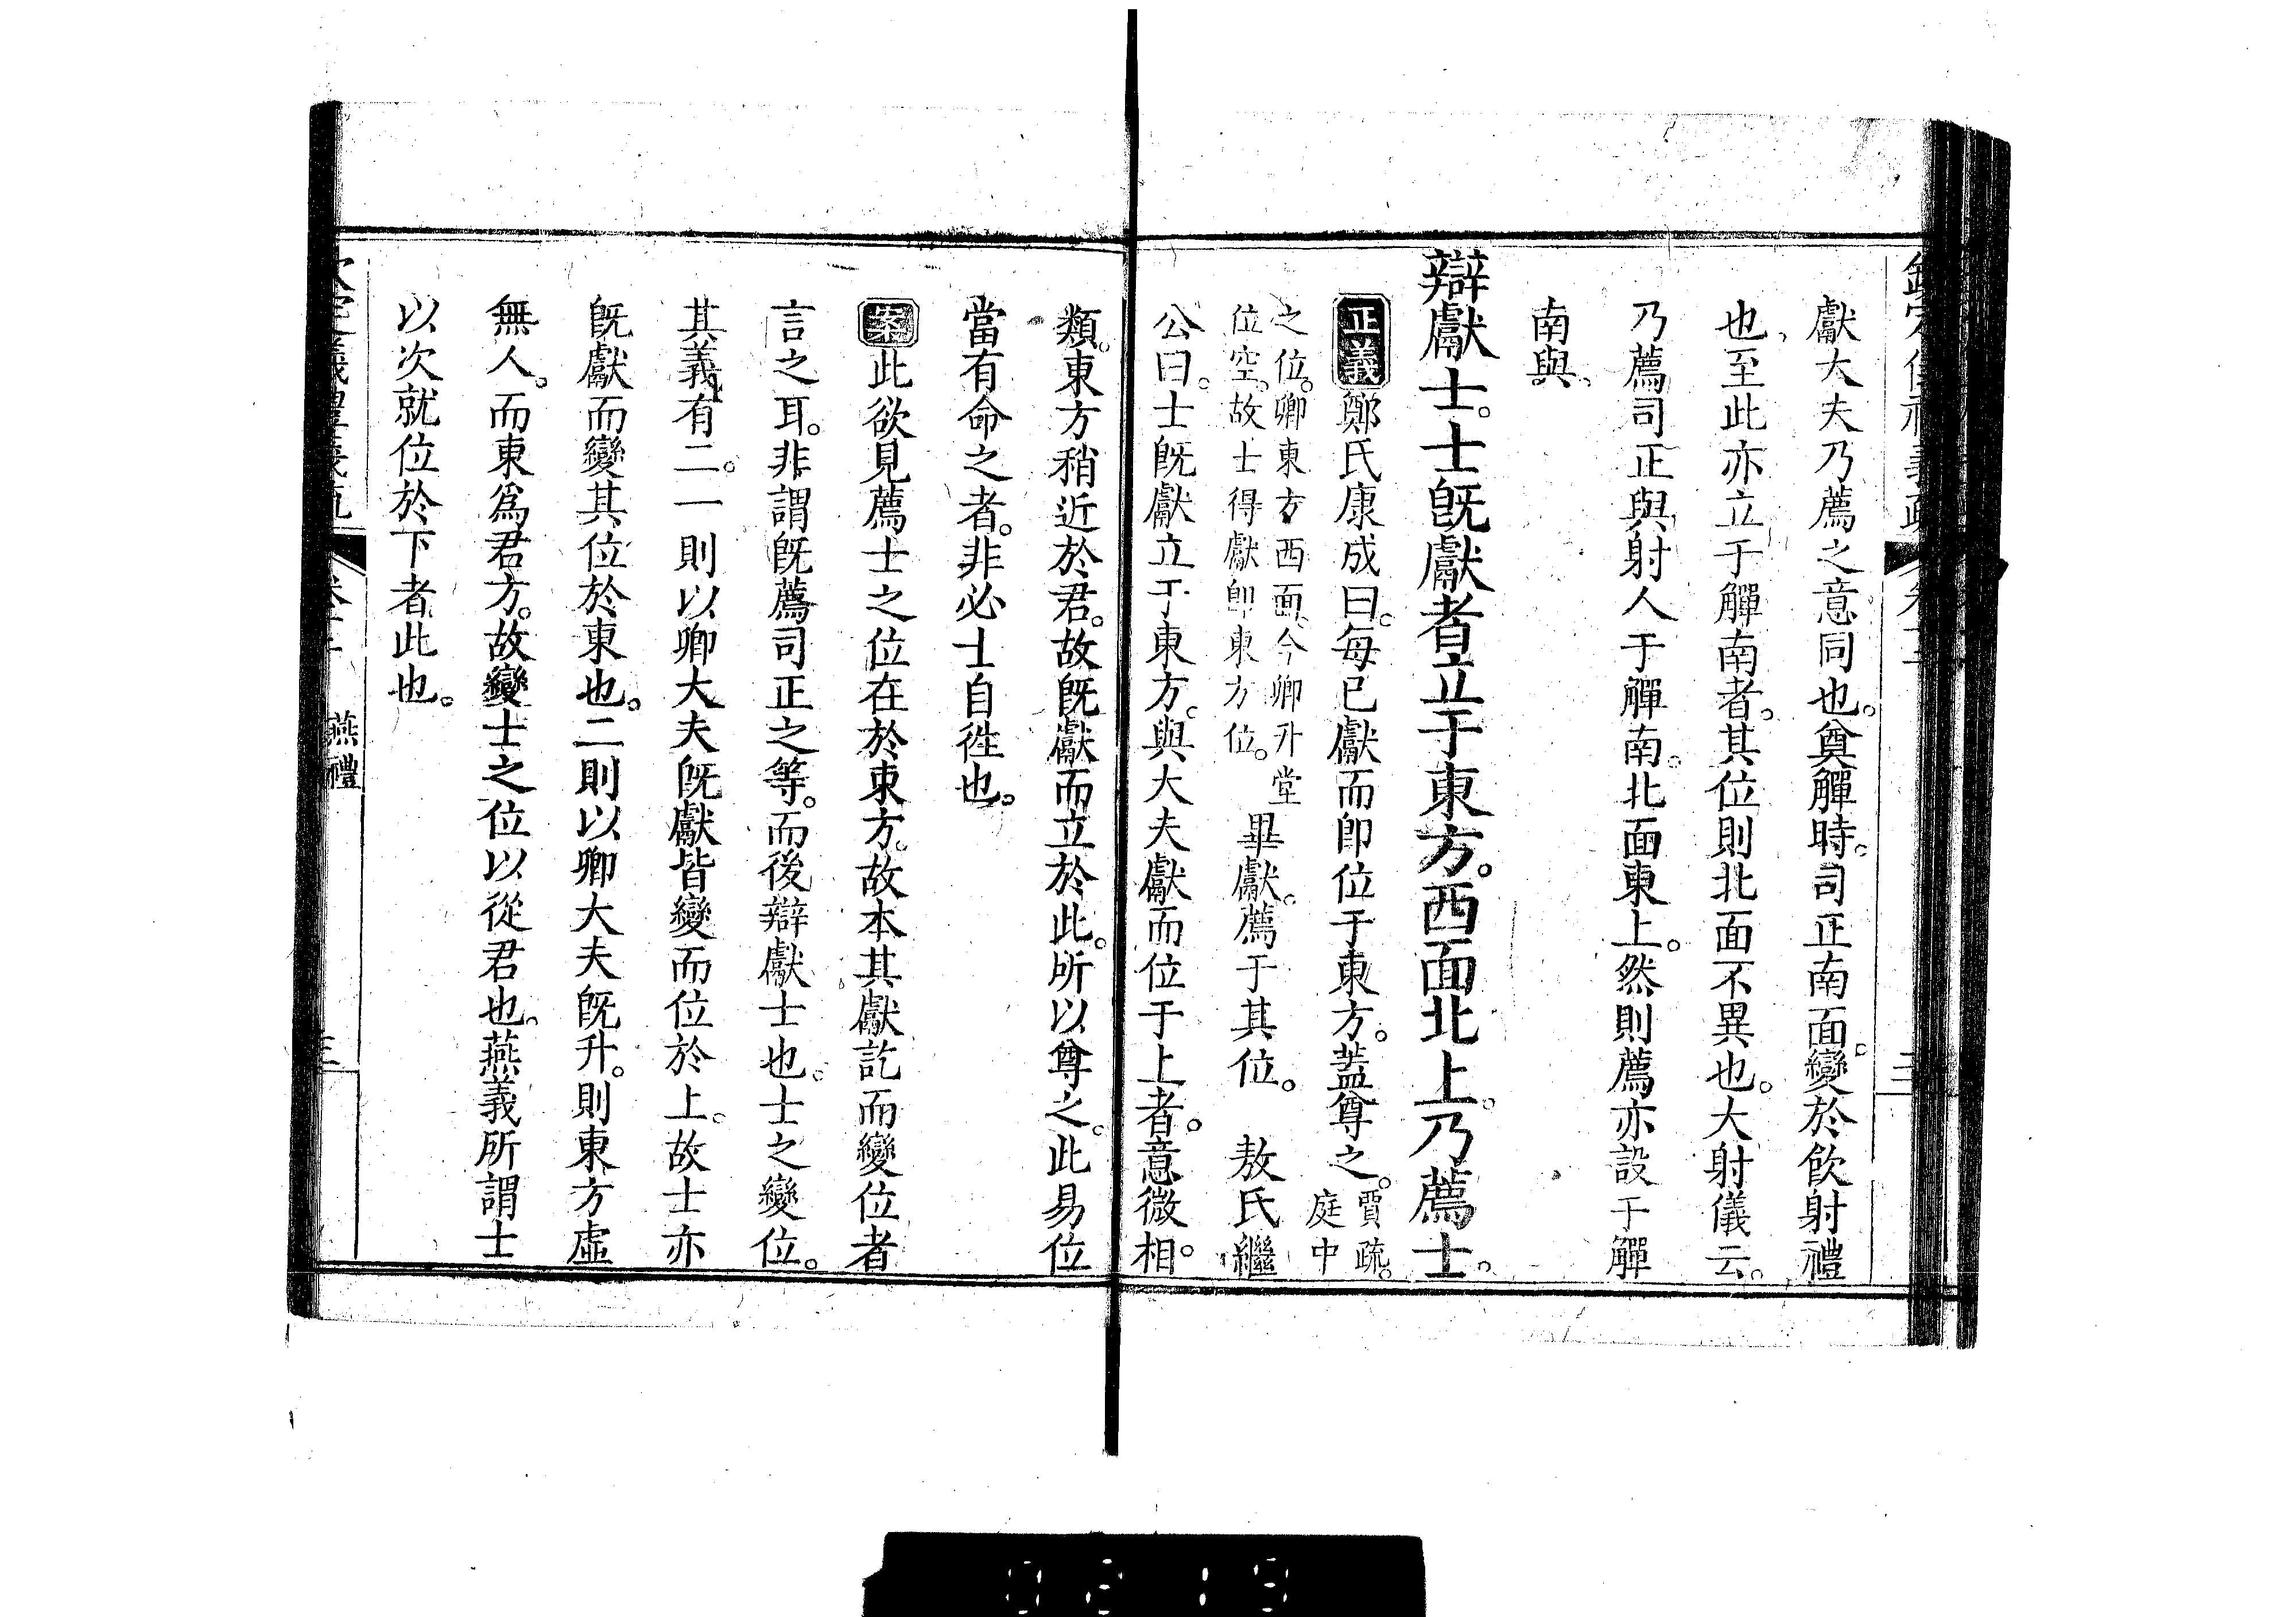 獻大夫乃薦之意同也。奠觶時。司正南面。變於飲射禮
也。至此亦立于觶南者。其位則北面不異也。大射儀云。
乃薦司正與射人于觶南。北面東上。然則薦亦設于觶
南與。
辯獻士。士旣獻者立于東方。西面北上。乃薦士。
正義鄭氏康成曰。每已獻而卽位于東方。蓋尊之。賈疏。庭中
之位。卿東方西面。今卿升堂
位空。故士得獻卽東方位。
畢獻。薦于其位。 敖氏繼
公曰。士旣獻立于東方。與大夫獻而位于上者。意微相。
類。東方稍近於君。故旣獻而立於此。所以尊之。此易位
當有命之者。非必士自徃也。
案此欲見薦士之位在於東方。故本其獻訖而變位者
言之耳。非謂旣薦司正之等。而後辯獻士也。士之變位。
其義有二。一則以卿大夫旣獻皆變而位於上。故士亦
旣獻而變其位於東也。二則以卿大夫旣升。則東方虛
無人。而東爲君方。故變士之位以從君也。燕義所謂士
以次就位於下者此也。
燕禮
三
0219